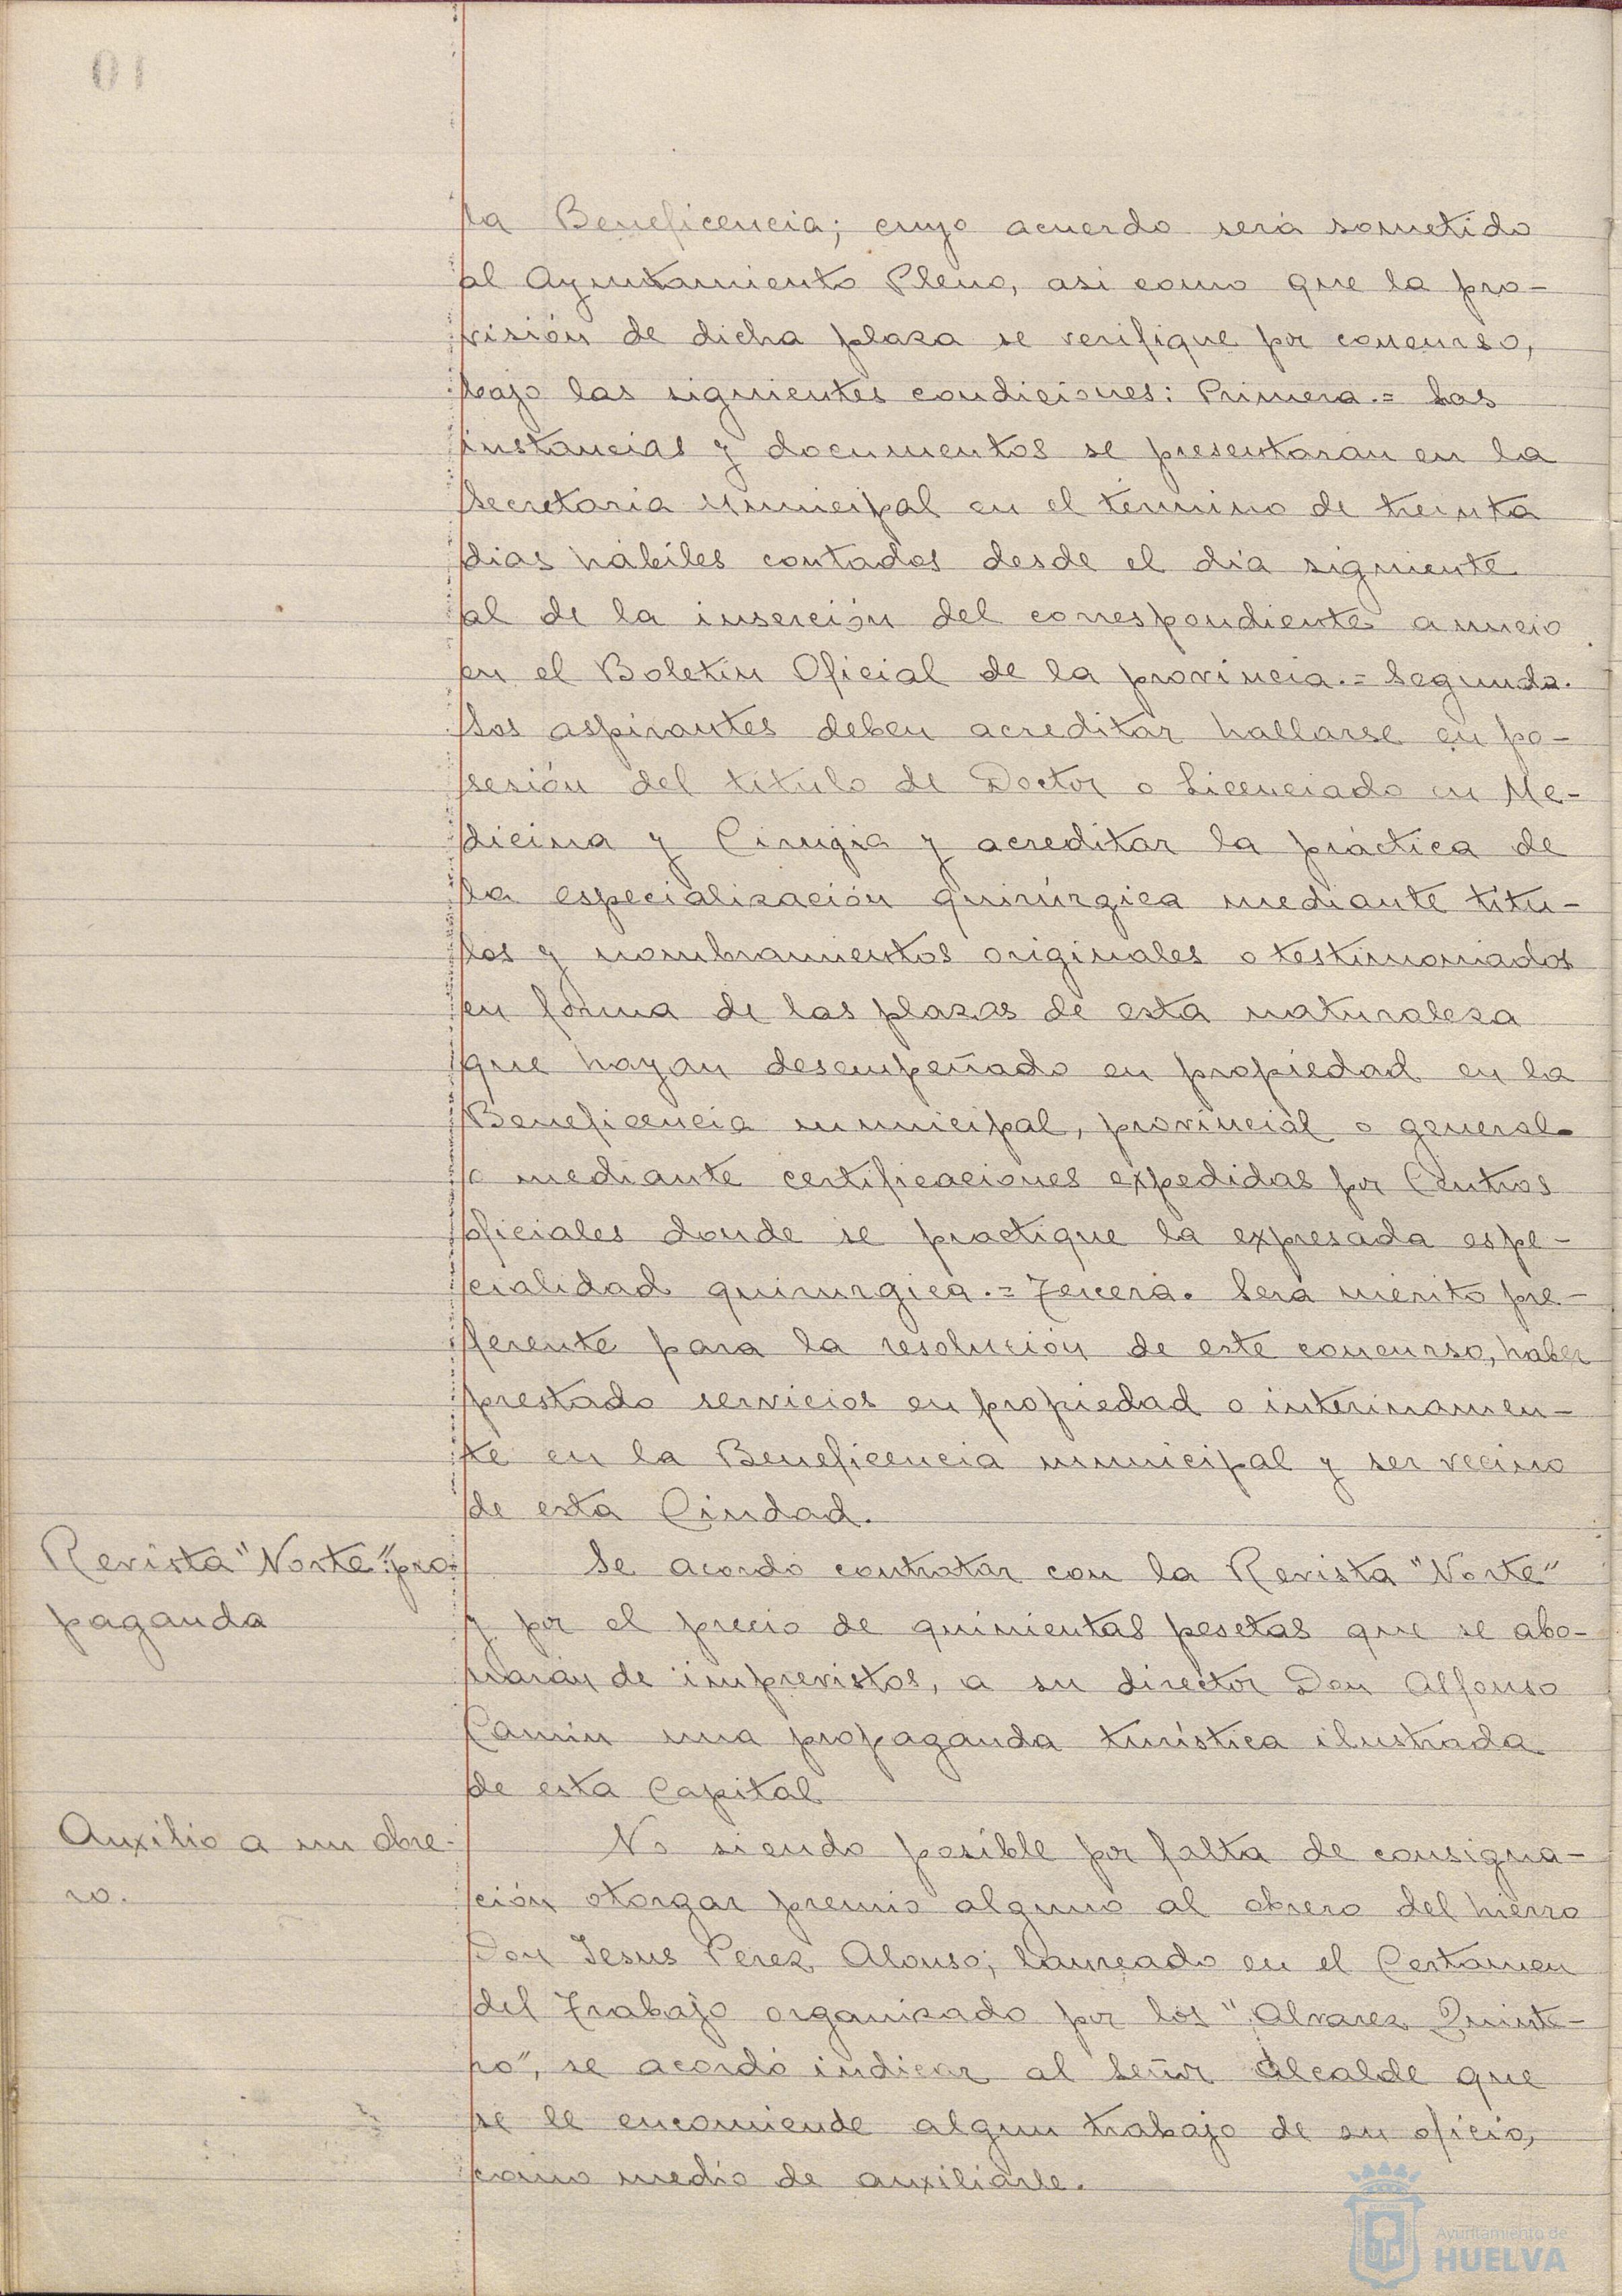 la Beneficencia; cuyo acuerdo será sometido
al Ayuntamiento Pleno, asi como que la pro-
visión de dicha plaza se verifique por concurso,
bajo las siguientes condiciones: Primera.= Las
instancias y documentos se presentarán en la
Secretaria Municipal en el término de treinta
dias hábiles contados desde el día siguiente
al de la inserción del correspondiente anuncio
en el Boletín Oficial de la provincia.= Segunda.
Los aspirantes deben acreditar hallarse en po-
sesión del título de Doctor o Licenciado en Me-
dicina y Cirugia y acreditar la práctica de
la especialización quirúrgica mediante titu-
los y nombramientos originales o testimoniados
en forma de las plazas de esta naturaleza
que hayan desempeñado en propiedad en la
Beneficencia municipal, provincial o general
o mediante certificaciones expedidas por Centros
oficiales donde se practique la expresada espe-
cialidad quirurgica.= Tercera. Será mérito pre-
ferente para la resolución de este concurso, haber
prestado servicios en propiedad o interinamen-
te en la Beneficencia municipal y ser vecino
de esta Ciudad.
Revista "Norte": pro-
paganda
Se acordó contratar con la Revista "Norte"
y por el precio de quinientas pesetas que se abo-
narán de imprevistos, a su director Don Alfonso
Camín una propaganda turística ilustrada
de esta Capital
Auxilio a un obre-
ro.
No siendo posible por falta de consigna-
ción otorgar premio alguno al obrero del hierro
Don Jesus Perez Alonso; laureado en el Certamen
del Trabajo organizado por los "Alvarez Quinte-
ro", se acordó indicar al Señor Alcalde que
se le encomiende algun trabajo de su oficio,
como medio de auxiliarle.
Ayuntamiento de
HUELVA